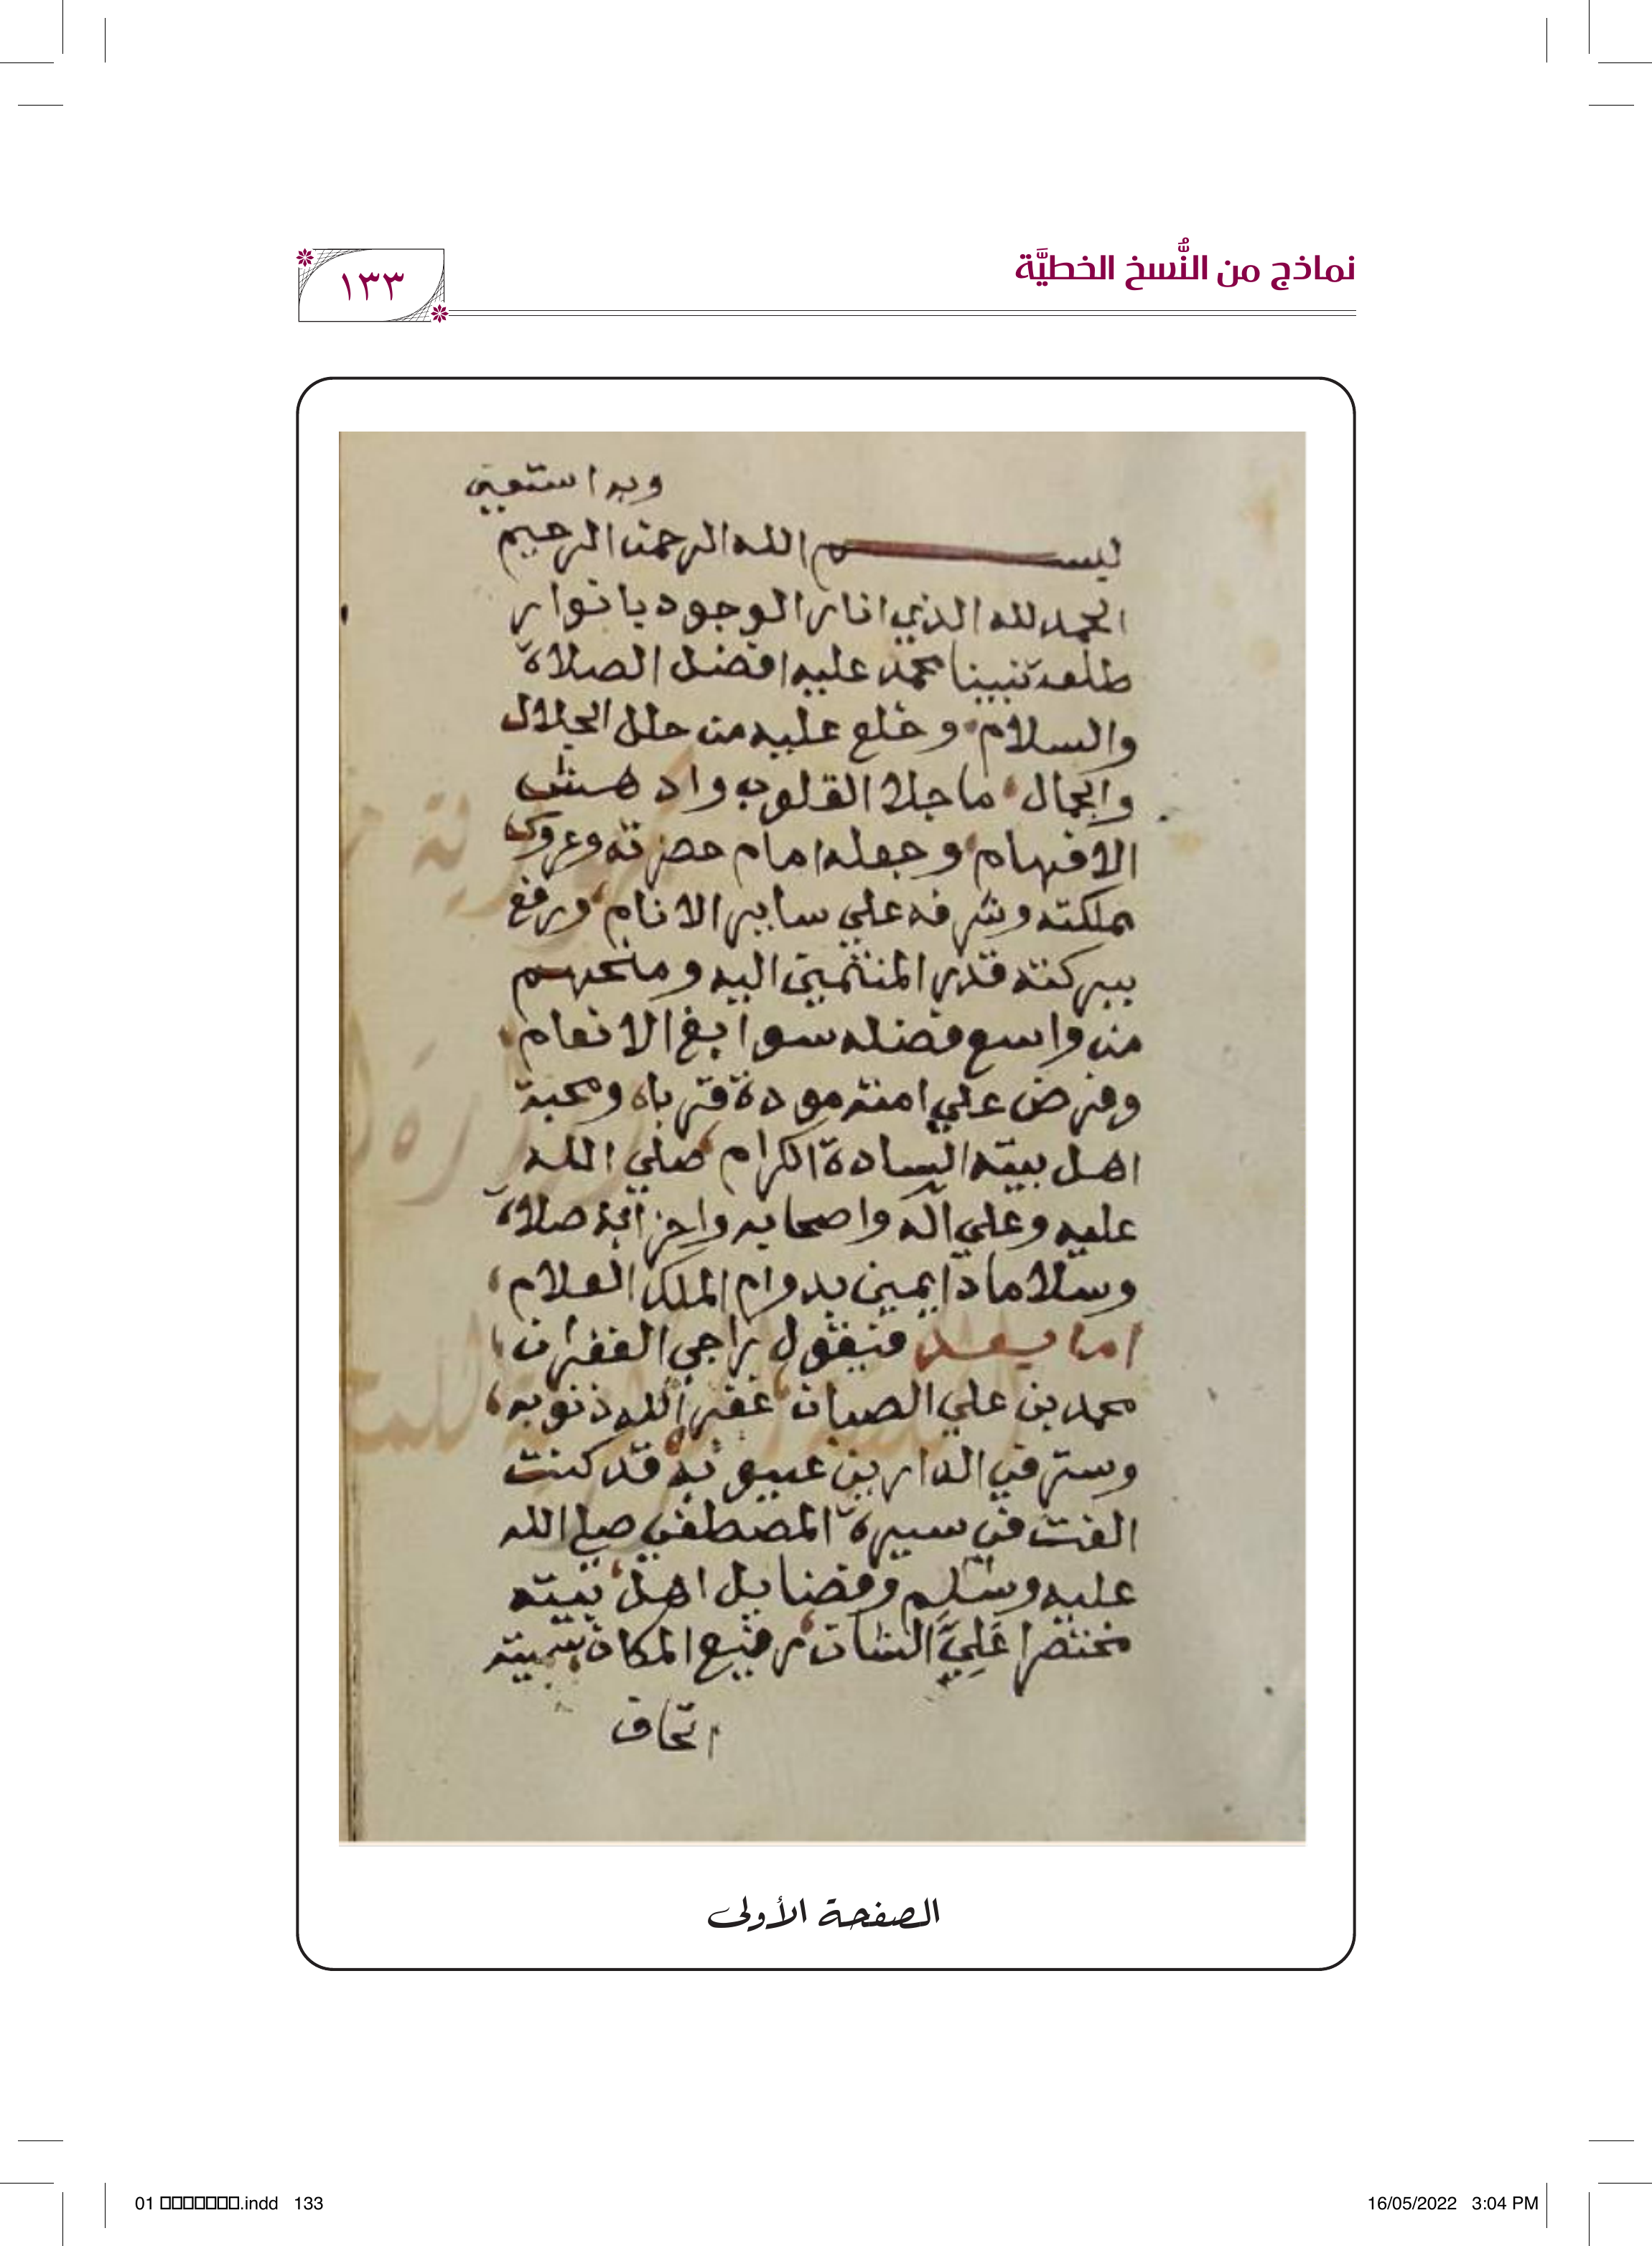 نماذج من النُّسخ الخطيَّة
١٣٣
وبه استعين
بسم الله الرحمن الرحيم
الحمد لله الذي انار الوجود بانوار
طلعة نبينا محمد عليه افضل الصلاة
والسلام وخلع عليه من حلل الجلال
والجمال ما جلا القلوب وادهش
الافهام وجعله امام حضرته وعروس
مملكته وشرفه علي ساير الانام ورفع
ببركته قدر المنتمين اليه ومنحهم
من واسع فضله سوابغ الانعام
وفرض علي امته مودة قرباه ومحبة
اهل بيته السادة الكرام صلي الله
عليه وعلي آله واصحابه واحزابه صلاة
وسلاما دايمين بدوام الملك العلام
اما بعد فيقول راجي الغفران
محمد بن علي الصبان غفر الله ذنوبه
وستر في الدارين عيوبه قد كنت
الفت في سيرة المصطفي صلي الله
عليه وسلم وفضايل اهل بيته
مختصرا عَلِيَّ الشان رفيع المكان سميته
اتحاف
الصفحة الأولى
01 .indd 133
16/05/2022 3:04 PM